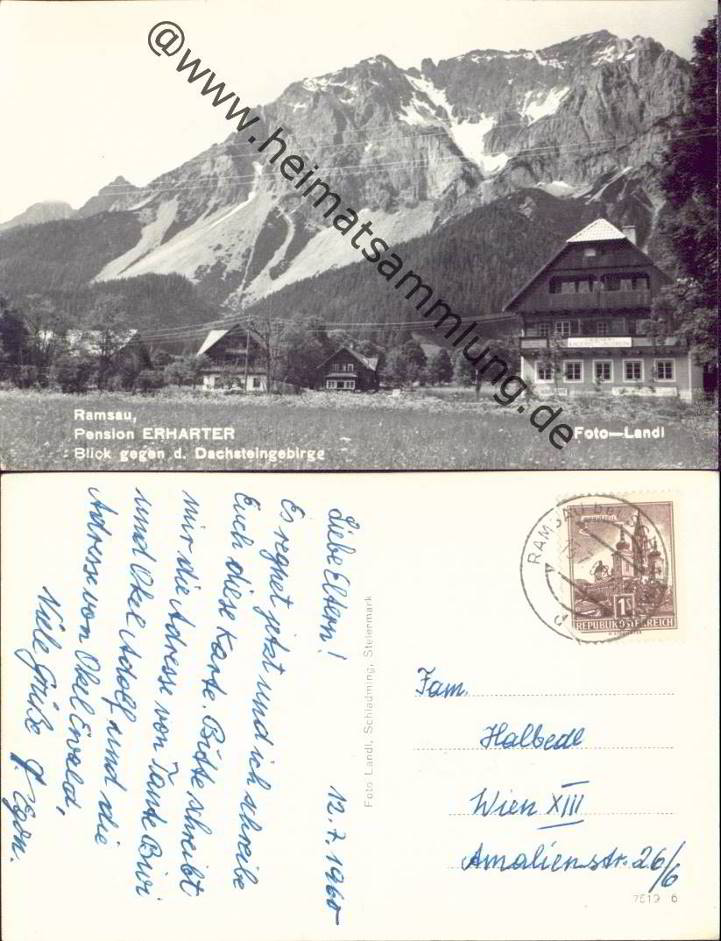 @www.heimatsammlung.de
Ramsau,
Pension ERHARTER
Blick gegen d. Dachsteingebirge
Foto—Landl
Liebe Eltern! 12.7.1960
Es regnet jetzt und ich schreibe
Euch diese Karte. Bitte schreibt
mir die Adresse von Tante Biwi
und Okel Adolf und die
Adresse von Okel Ewald,
Viele Grüße Egon.
Foto Landl, Schladming, Steiermark
RAMSAU
1S
REPUBLIK ÖSTERREICH
Fam.
Halbedl
Wien XIII
Amalienstr. 26/6
7519 6